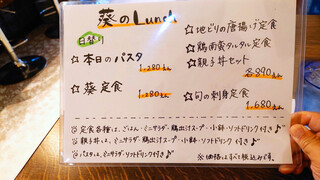 葵のLunch
日替り
☆本日のパスタ
1,280えん
☆葵定食
1,280えん
☆地どりの唐揚げ定食
☆鶏南蛮タルタル定食
☆親子丼セット
各990えん
☆旬の刺身定食
1,680えん
☆定食各種は、ごはん・ミニサラダ・鶏出汁スープ・小鉢・ソフトドリンク付き♪
☆親子丼は、ミニサラダ・鶏出汁スープ・小鉢・ソフトドリンク付き♪
☆パスタは、ミニサラダ・鶏出汁スープ・ソフトドリンク付き♪
※価格はすべて税込みです。